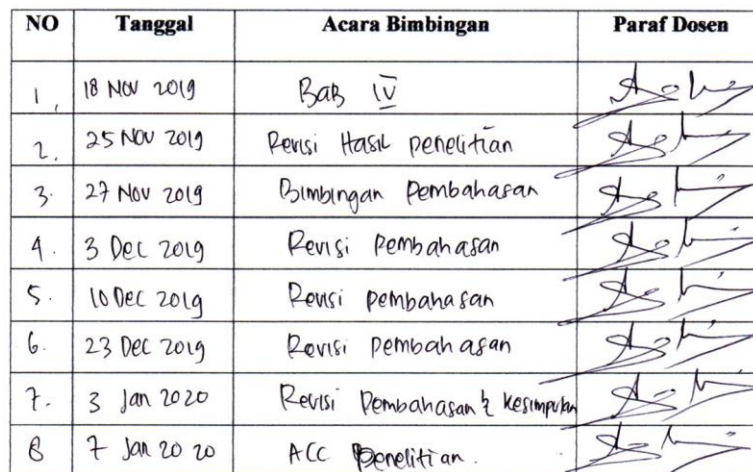 NO Tanggal Acara Bimbingan Paraf Dosen
1. 18 Nov 2019 Bab IV
2. 25 Nov 2019 Revisi Hasil penelitian
3. 27 Nov 2019 Bimbingan Pembahasan
4. 3 Dec 2019 Revisi pembahasan
5. 10 Dec 2019 Revisi pembahasan
6. 23 Dec 2019 Revisi pembahasan
7. 3 Jan 2020 Revisi Pembahasan & kesimpulan
8 7 Jan 2020 ACC Penelitian.